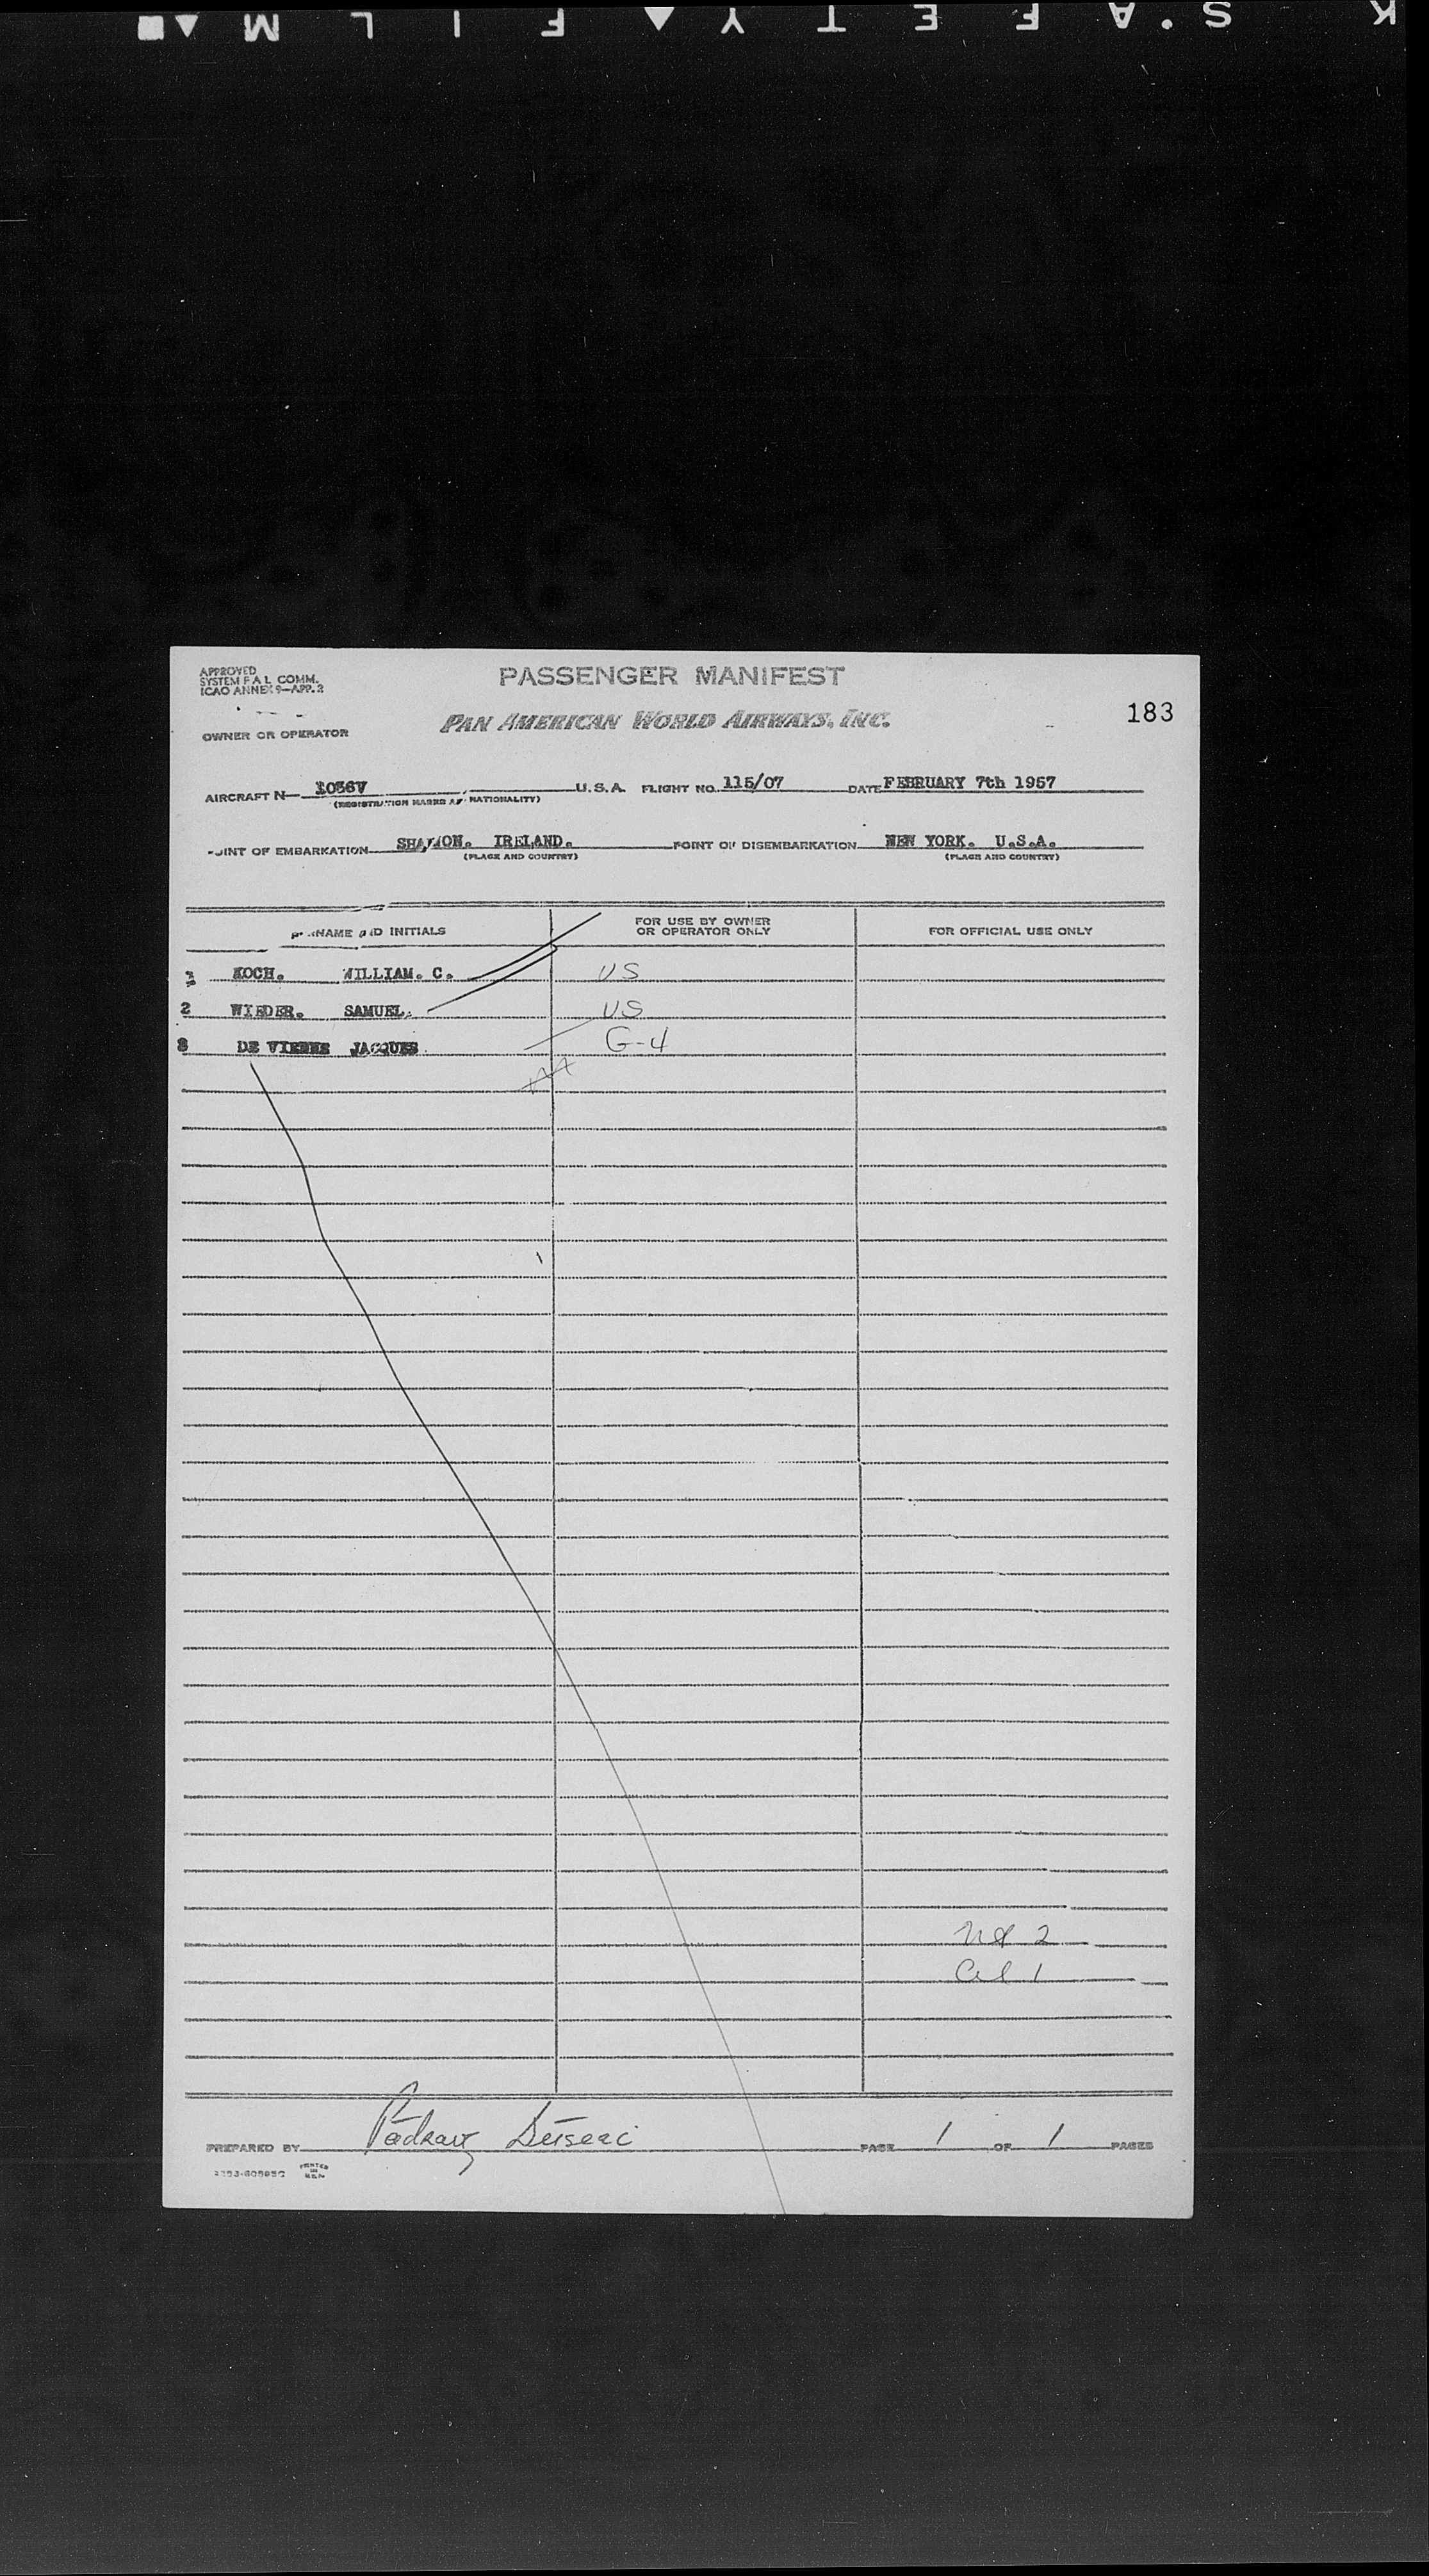 K S • A F E T Y ▲ F I L M
APPROVED
SYSTEM F A L COMM.
ICAO ANNEX 9—APP. 2
PASSENGER MANIFEST
183
OWNER OR OPERATOR
PAN AMERICAN WORLD AIRWAYS, INC.
AIRCRAFT N— 1036V U.S.A. FLIGHT NO. 115/07 DATE FEBRUARY 7th 1957
(REGISTRATION MARKS AND NATIONALITY)
POINT OF EMBARKATION SHANNON. IRELAND. POINT OF DISEMBARKATION NEW YORK. U.S.A.
(PLACE AND COUNTRY) (PLACE AND COUNTRY)
SURNAME AND INITIALS FOR USE BY OWNER OR OPERATOR ONLY FOR OFFICIAL USE ONLY
1 KOCH. WILLIAM. C. US
2 WIEDER. SAMUEL. US
3 DE VIENNE JACQUES G-4
2
1
PREPARED BY PAGE 1 OF 1 PAGES
PRINTED
IN
U.S.A.